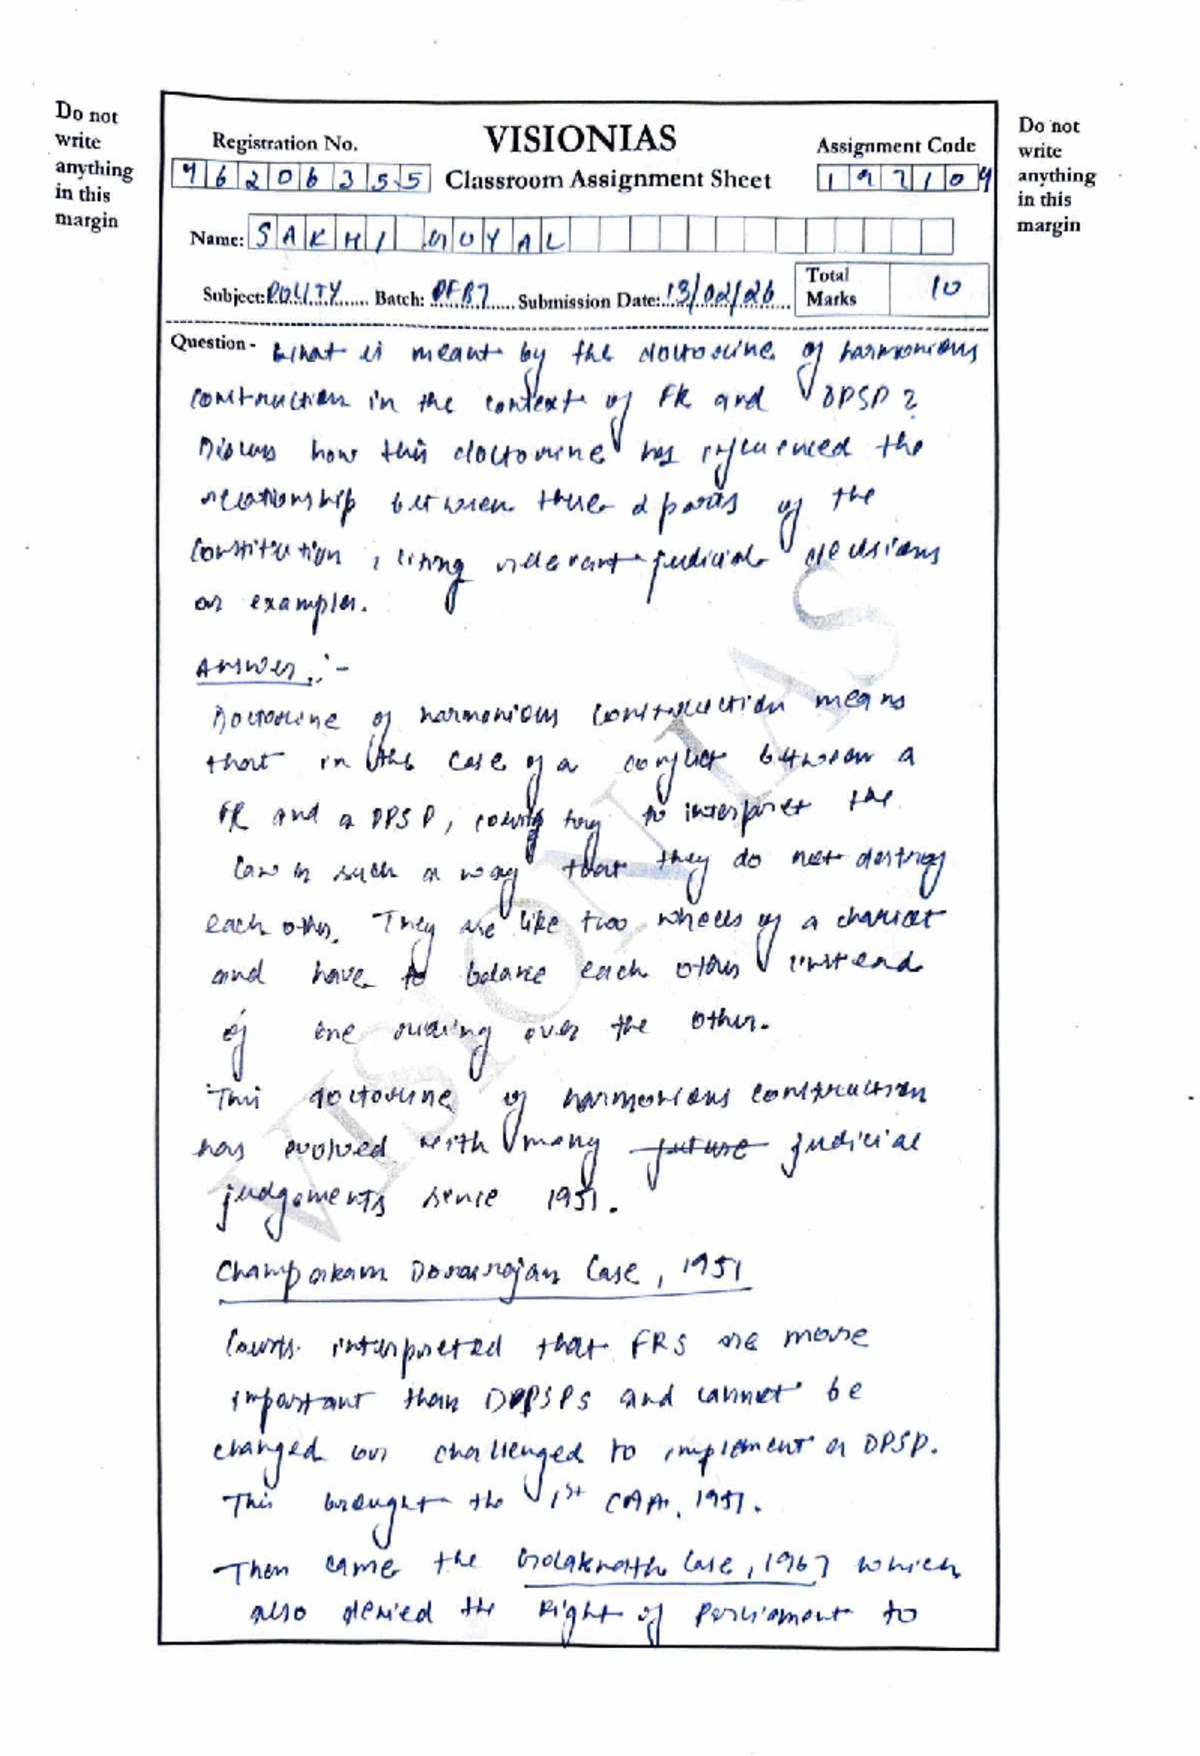 Do not
write
anything
in this
margin
Registration No.
VISIONIAS
Assignment Code
Do not
write
anything
in this
margin
962206355
Classroom Assignment Sheet
197109
Name: SAKHI GOYAL
Subject: POLITY Batch: PFB7 Submission Date: 13/02/26
Total
Marks
10
Question - What is meant by the doctorine of harmonious
construction in the context of FR and DPSP?
Discuss how this doctorine has influenced the
relationship between these 2 parts of the
constitution, citing relevant judicial decisions
or examples.
Answer :-
Doctorine of harmonious construction means
that in the case of a conflict between a
FR and a DPSP, courts try to interpret the
law in such a way that they do not destroy
each other. They are like two wheels of a chariot
and have to balance each other instead
of one ruling over the other.
This doctorine of harmonious construction
has evolved with many future judicial
judgements since 1951.
Champakam Dorairajan Case, 1951
Courts interpreted that FRS are more
important than DPSPs and cannot be
changed or challenged to implement a DPSP.
This brought the 1st CAA, 1951.
Then came the Golaknath Case, 1967 which
also denied the Right of Parliament to
VISIONIAS